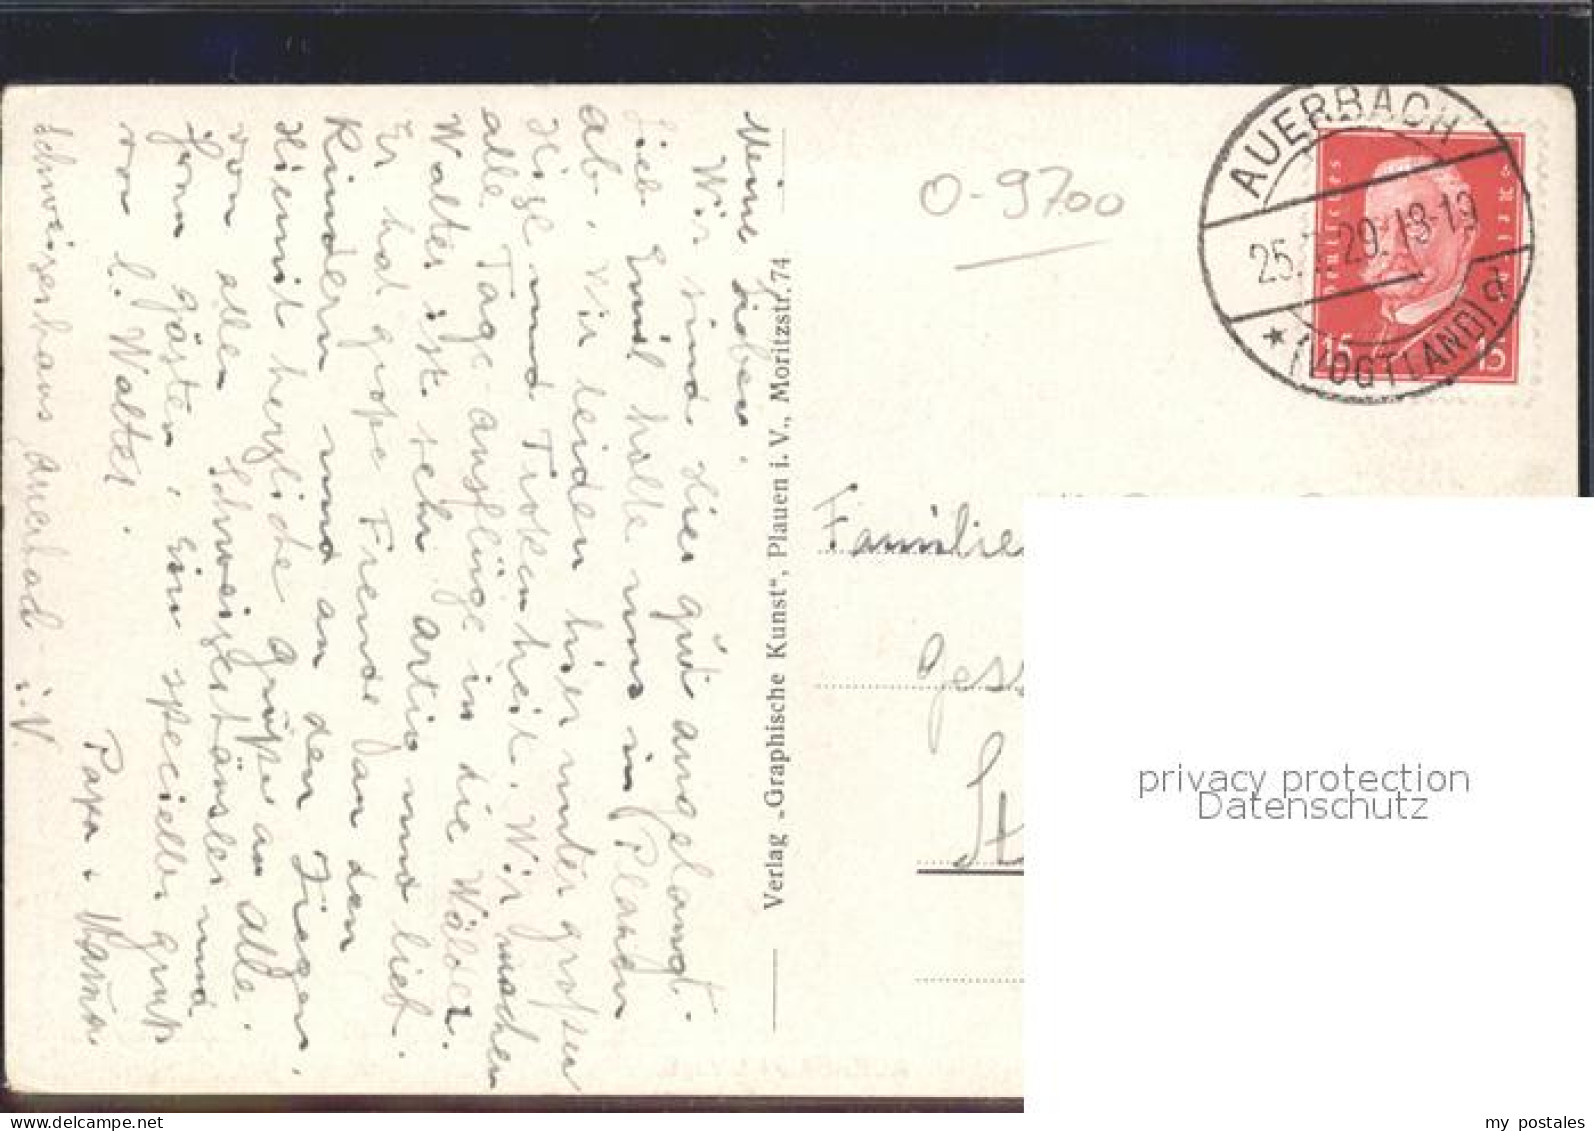 Meine Lieben.
Wir sind hier gut angelangt.
Lieb Emil holte uns in Plauen
ab. Wir leiden hier unter großen
Hize und Trokenheit. Wir machen
alle Tage ausflüge in die Wälder.
Walter ist sehr artig und lieb.
Er hat große Freude an den
Kindern und an den Ziegen.
Hiemit herzliche grüße an alle
von allen Schweizerhäusler und
gästen, ein specielle gruß
von l. Walter.
Papa + Mama
Schweizerhaus Auerbach i.V.
Verlag „Graphische Kunst“, Plauen i. V., Moritzstr. 74
O-9700
AUERBACH
25. 29. 18-19
* (VOGTLAND) d
Deutsches Reich
15 15
Familie
Gess
St
privacy protection
Datenschutz
my postales